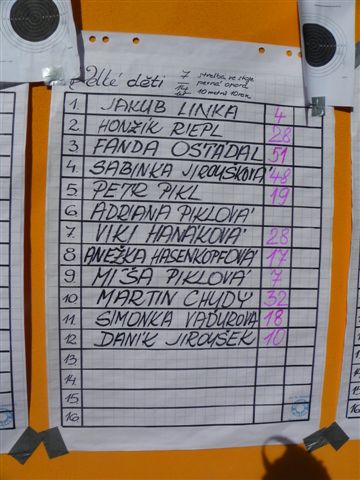 děti 7 střelba ve stoje
pevná opora
10 metrů 10 ran
1. JAKUB LINKA 4
2. HONZÍK RIEPL 28
3 FANDA OSTÁDAL 51
4. SABINKA JIROUŠKOVÁ 48
5 PETR PIKL 19
6 ADRIANA PIKLOVÁ
7. VIKI HANÁKOVÁ 28
8 ANEŽKA HASENKOPFOVÁ 17
9 MÍŠA PIKLOVÁ 7
10 MARTIN CHUDÝ 32
11. SIMONKA VADUROVÁ 18
12 DANÍK JIROUŠEK 10
13.
14.
15.
16.